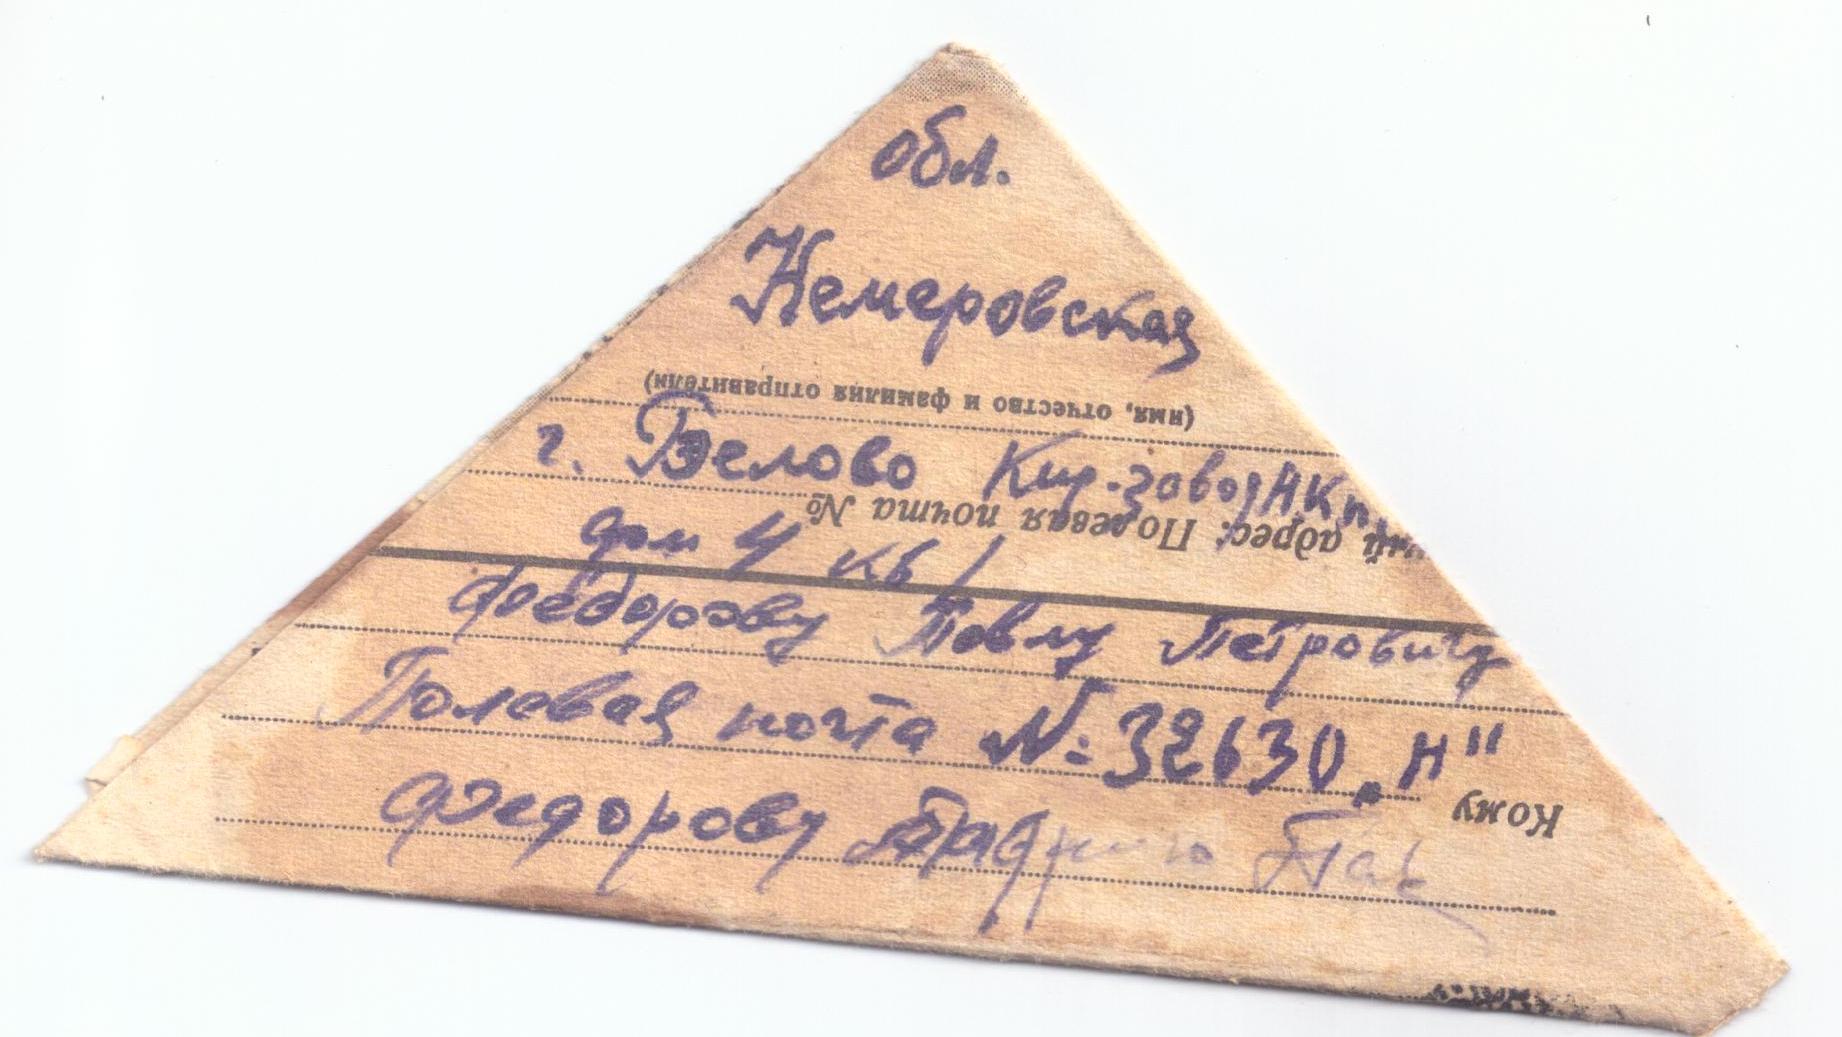 обл.
Кемеровская
(имя, отчество и фамилия отправителя)
г. Белово Кир. завод НКп.
адрес: Полевая почта №
дом 4 кв 1
Фёдорову Павлу Петровичу
Полевая почта №: 32630 „Н"
Кому
Федорову